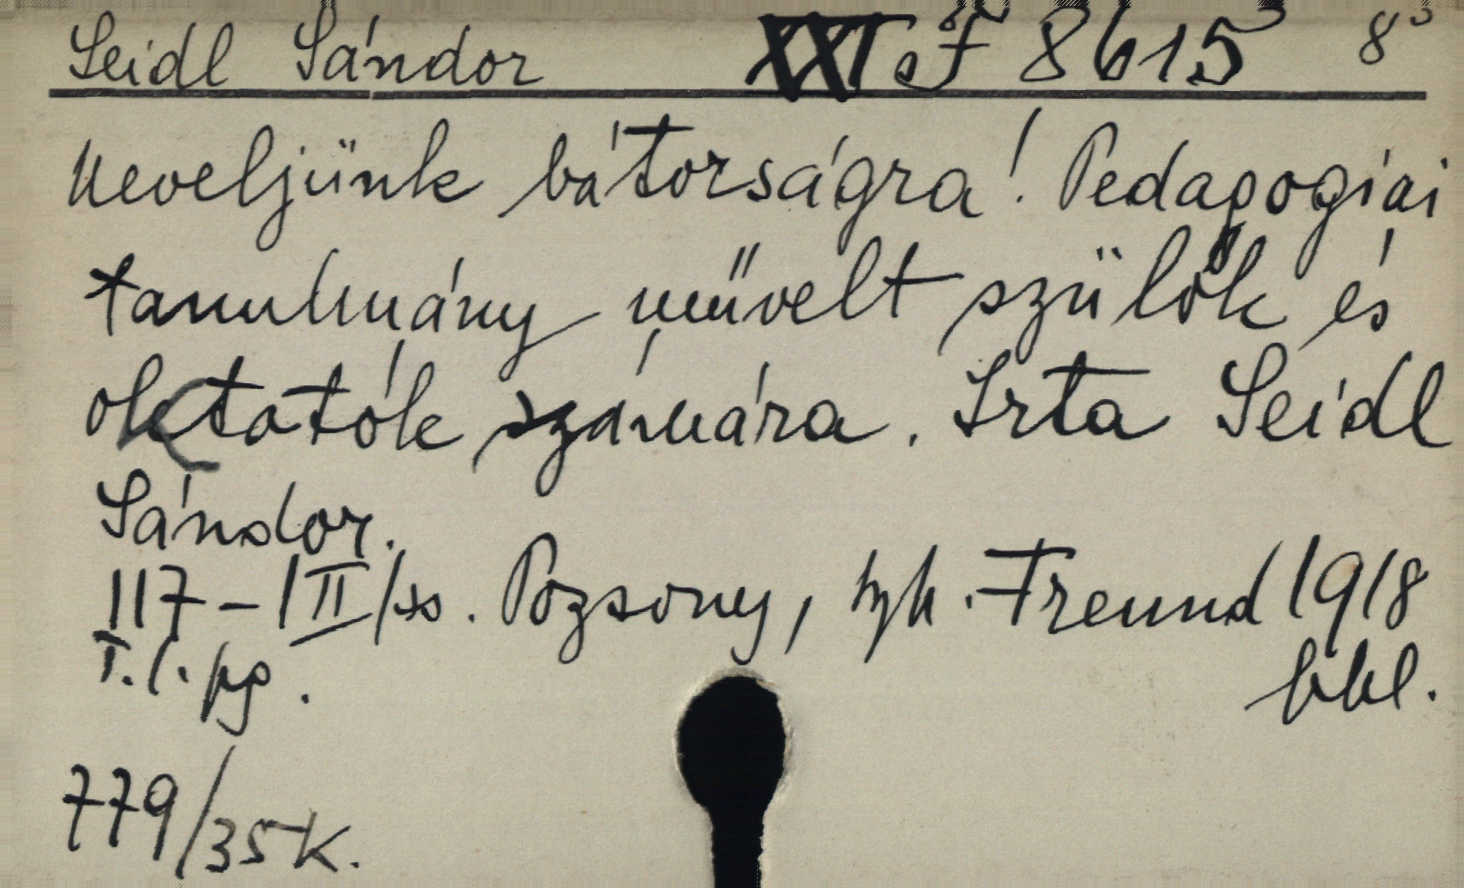 Seidl Sándor XXI. F 8615 8°
Neveljünk bátorságra! Pedagogiai
tanulmány művelt szülők és
oktatók számára. Irta Seidl
Sándor.
117-|II/ss. Pozsony, tyk. Freund 1918
T. l. pg. bbl.
779/35K.